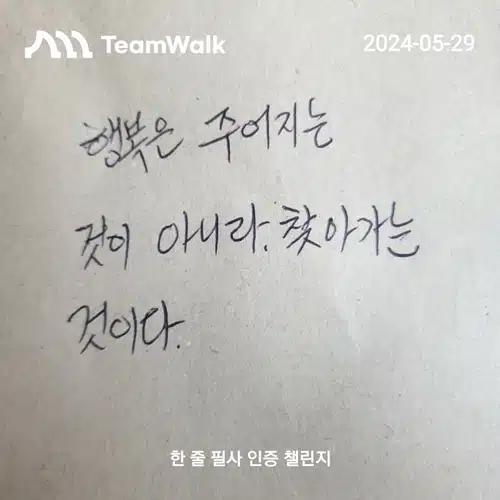 TeamWalk
2024-05-29
행복은 주어지는
것이 아니라. 찾아가는
것이다.
한 줄 필사 인증 챌린지